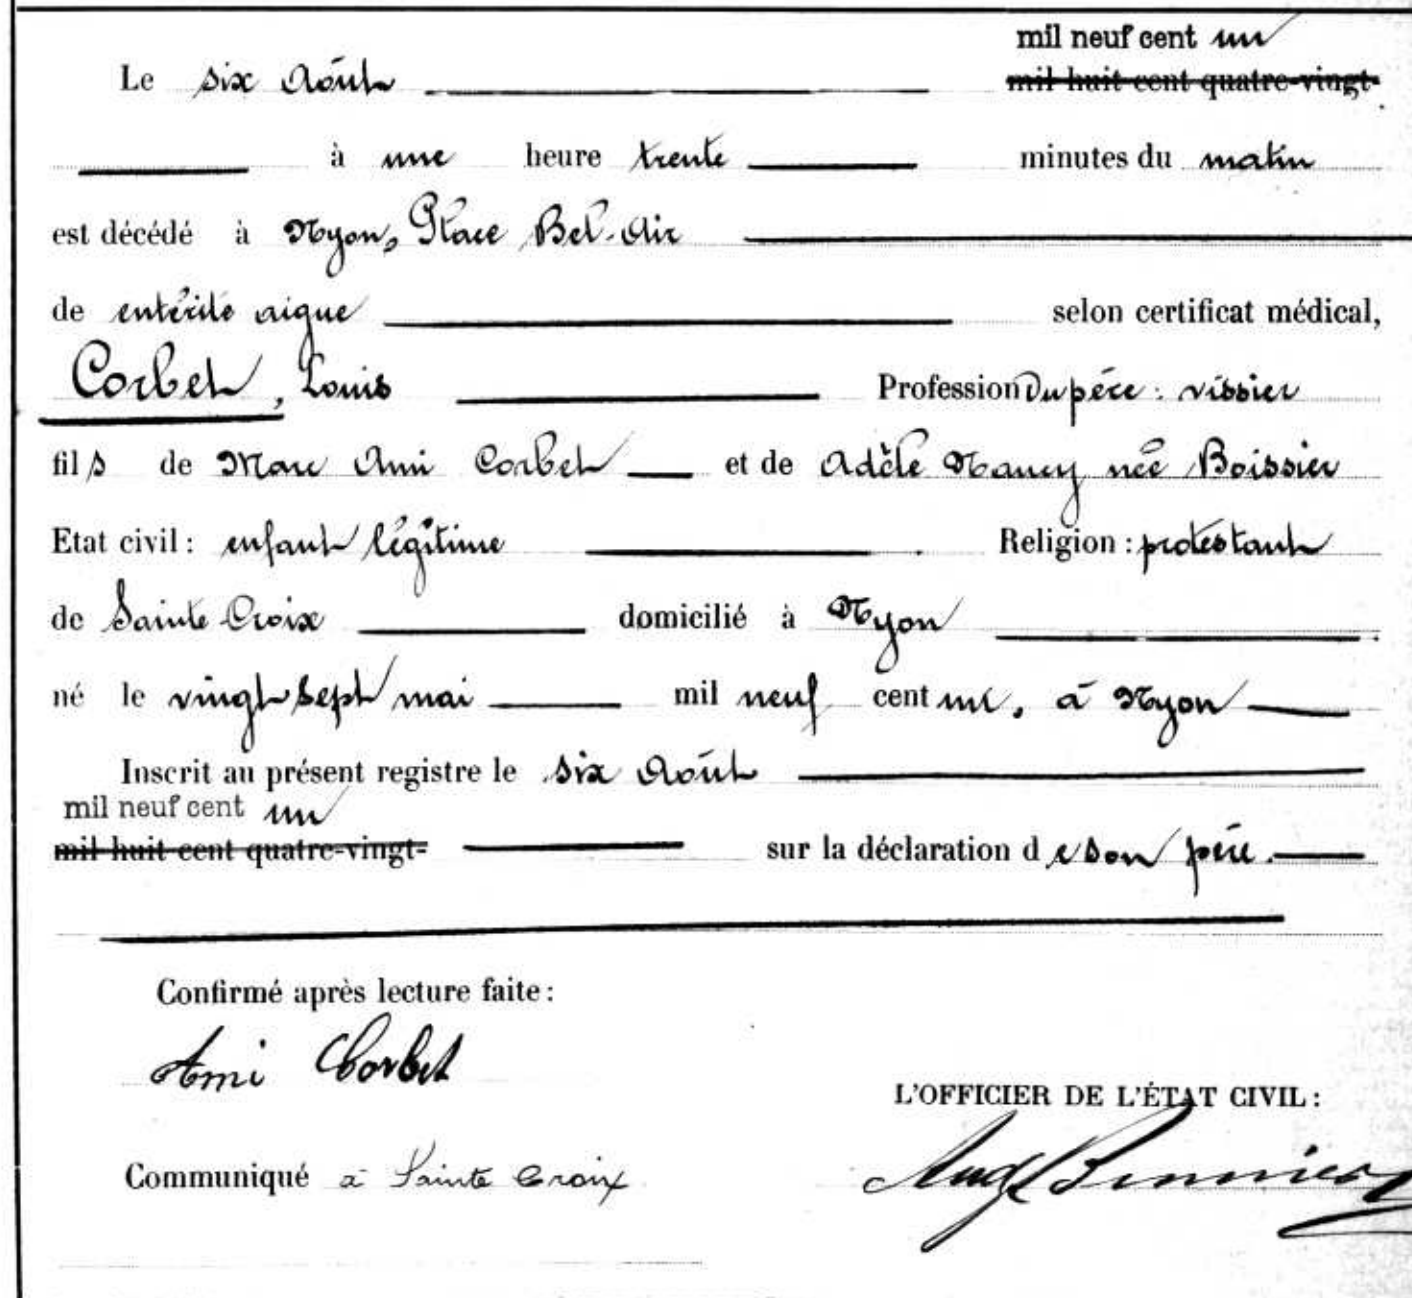 mil neuf cent un
Le six Août mil huit cent quatre-vingt-
à une heure trente minutes du matin
est décédé à Nyon, Place Bel-Air
de entérite aigue selon certificat médical,
Corbet, Louis Profession du père : vissier
fils de Marc Ami Corbet et de Adèle Nancy née Boissier
Etat civil : enfant légitime Religion : protestant
de Sainte Croix domicilié à Nyon
né le vingt sept mai mil neuf cent un, à Nyon
Inscrit au présent registre le six Août
mil neuf cent un
mil huit cent quatre-vingt- sur la déclaration de son père.
Confirmé après lecture faite :
Ami Corbet
L'OFFICIER DE L'ÉTAT CIVIL :
Communiqué à Sainte Croix